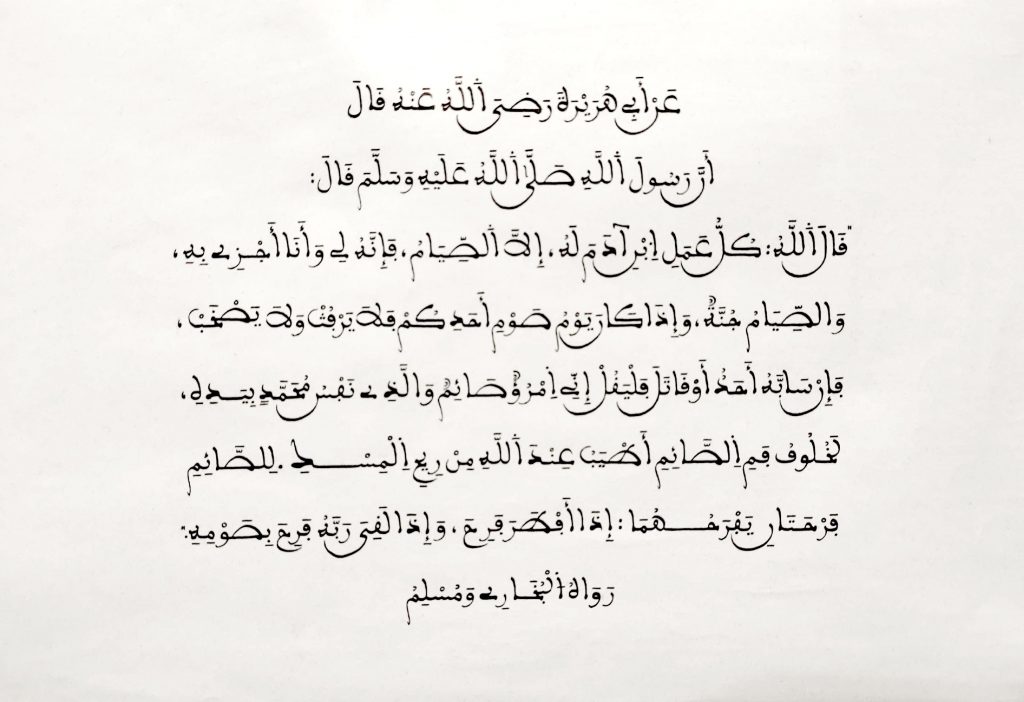 عَنْ أَبِي هُرَيْرَةَ رَضِيَ ٱللَّهُ عَنْهُ قَالَ
أَنَّ رَسُولَ ٱللَّهِ صَلَّى ٱللَّهُ عَلَيْهِ وَسَلَّمَ قَالَ:
"قَالَ ٱللَّهُ: كُلُّ عَمَلِ اِبْنِ آدَمَ لَهُ، إِلَّا ٱلصِّيَامُ، فَإِنَّهُ لِي وَأَنَا أَجْزِي بِهِ،
وَالصِّيَامُ جُنَّةٌ، وَإِذَا كَانَ يَوْمُ صَوْمِ أَحَدِكُمْ فَلَا يَرْفُثْ وَلَا يَصْخَبْ،
فَإِنْ سَابَّهُ أَحَدٌ أَوْ قَاتَلَ فَلْيَقُلْ إِنِّي اِمْرُؤٌ صَائِمٌ وَالَّذِي نَفْسُ مُحَمَّدٍ بِيَدِهِ،
لَخُلُوفُ فَمِ اِلصَّائِمِ أَطْيَبُ عِنْدَ ٱللَّهِ مِنْ رِيحِ اِلْمِسْكِ. لِلصَّائِمِ
فَرْحَتَانِ يَفْرَحُهُمَا: إِذَا أَفْطَرَ فَرِحَ، وَإِذَا لَقِيَ رَبَّهُ فَرِحَ بِصَوْمِهِ."
رَوَاهُ اُلْبُخَارِي وَمُسْلِمُ